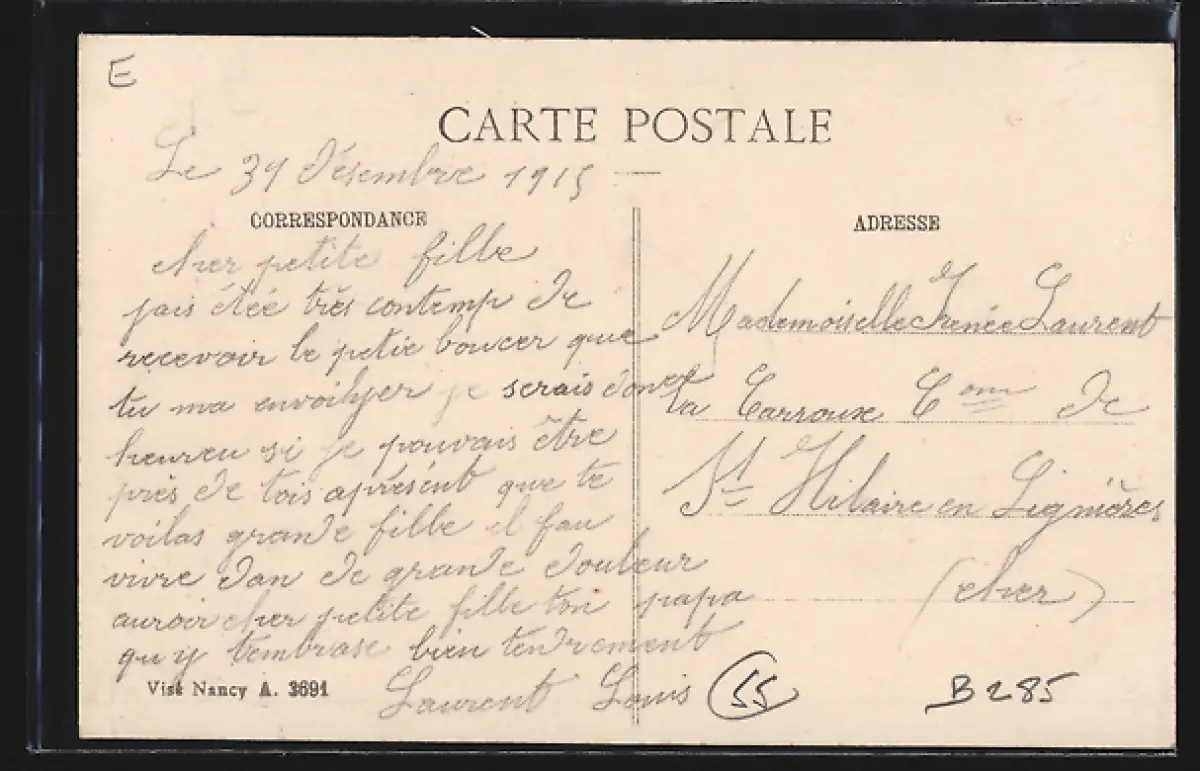 E
CARTE POSTALE
Le 31 désembre 1915
CORRESPONDANCE
cher petite fille
jais étée très contemp de
recevoir le petie boucer que
tu ma envoilyer je serais donc
heureu si je pouvais être
près de tois aprésent que te
voilas grande fille il fau
vivre dan de grande douleur
auroir cher petite fille ton papa
qu y tembrase bien tendrement
Laurent Louis
Visé Nancy A. 3691
ADRESSE
Mademoiselle Irenée Laurent
la Carroux Com de
St Hilaire en Lignières
(cher)
55
B285